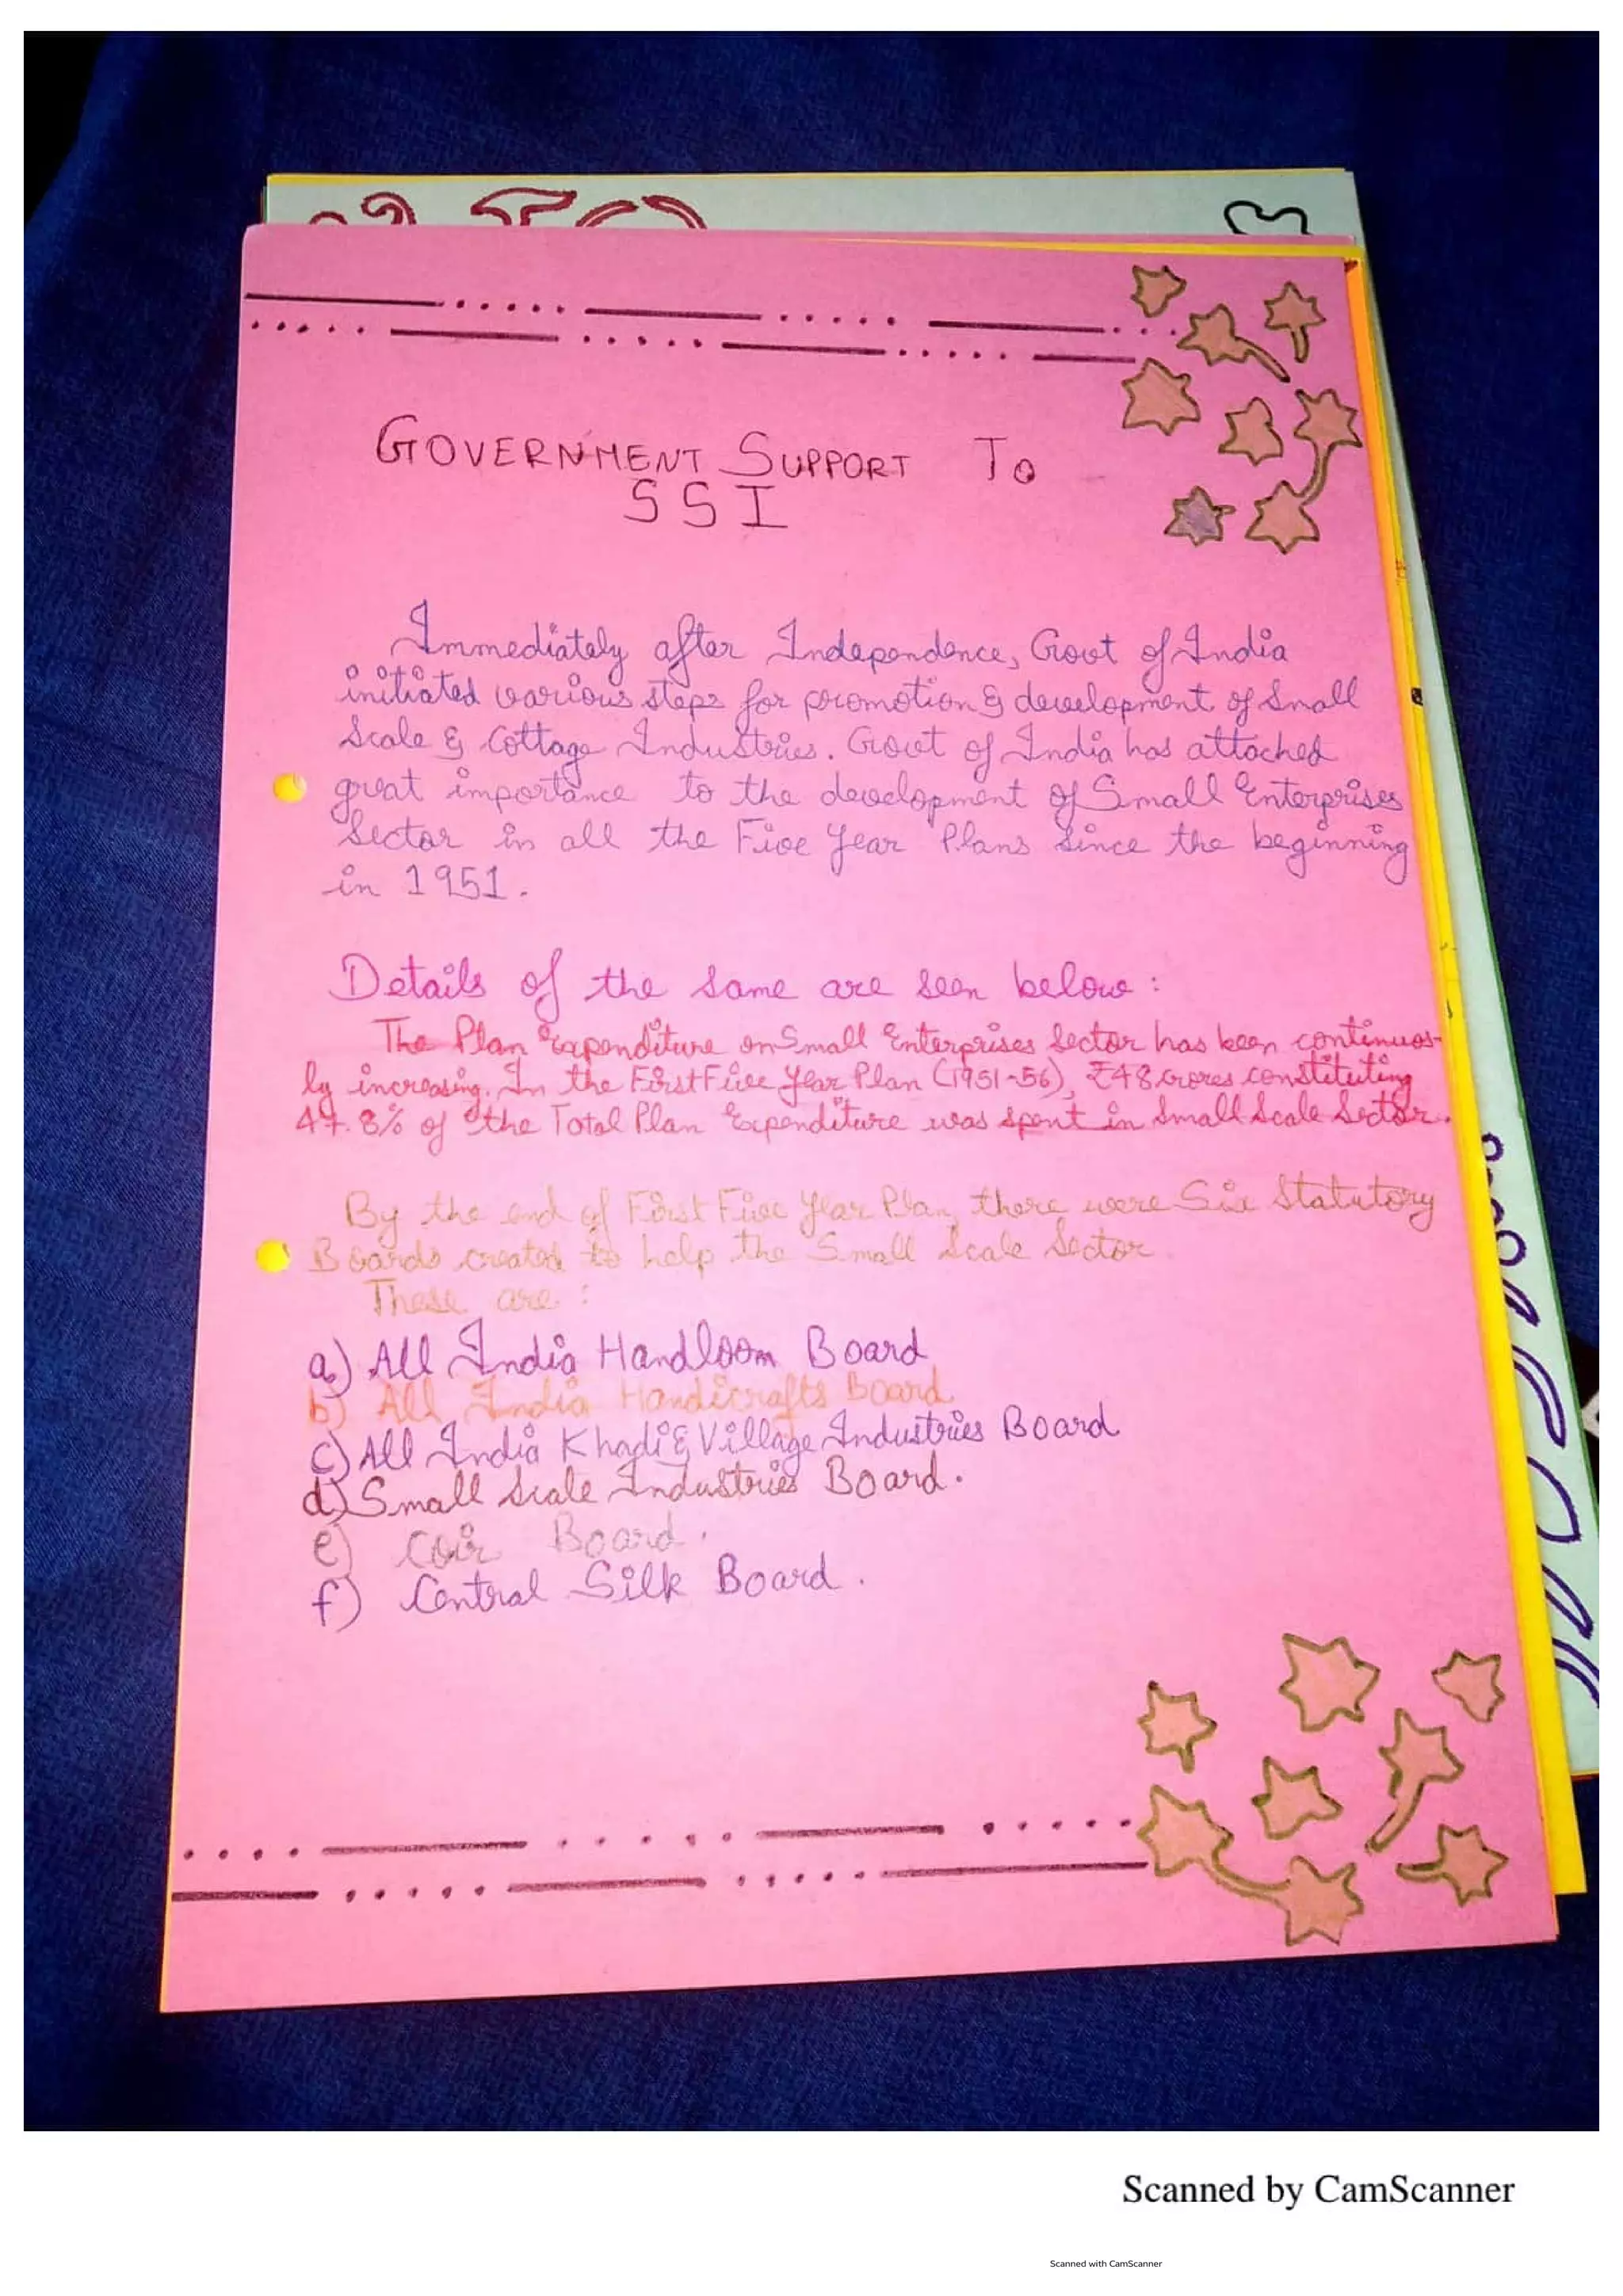 GOVERNMENT SUPPORT To
SSI
Immediately after Independence, Govt of India
initiated various steps for promotion & development of Small
Scale & Cottage Industries. Govt of India has attached
great importance to the development of Small Enterprises
Sector in all the Five Year Plans since the beginning
in 1951.
Details of the same are seen below:
The Plan Expenditure on Small Enterprises Sector has been continuos-
ly increasing. In the First Five Year Plan (1951-56), ₹48 crores constituting
47.8% of the Total Plan Expenditure was spent in Small Scale Sector.
By the end of First Five Year Plan, there were Six Statutory
Boards created to help the Small Scale Sector
These are:
a) All India Handloom Board
b) All India Handicrafts Board
c) All India Khadi & Village Industries Board
d) Small Scale Industries Board.
e) Coir Board.
f) Central Silk Board.
Scanned by CamScanner
Scanned with CamScanner